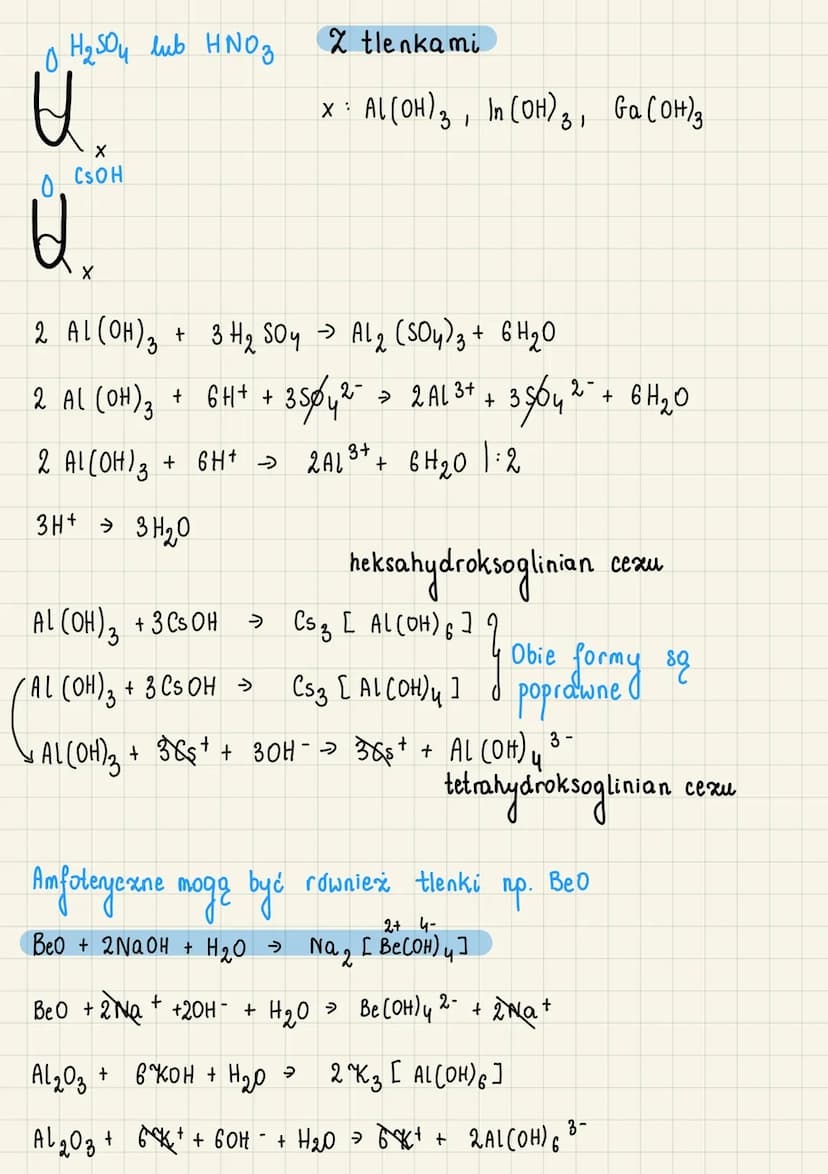 H₂SO₄ lub HNO₃ Z tlenkami
x : Al(OH)₃ , In(OH)₃ , Ga(OH)₃
x
CsOH
x
2 Al(OH)₃ + 3H₂SO₄ → Al₂(SO₄)₃ + 6H₂O
2 Al(OH)₃ + 6H⁺ + 3SO₄²⁻ → 2Al³⁺ + 3SO₄²⁻ + 6H₂O
2 Al(OH)₃ + 6H⁺ → 2Al³⁺ + 6H₂O |:2
3H⁺ → 3H₂O
heksahydroksoglinian cezu
Al(OH)₃ + 3CsOH → Cs₃[Al(OH)₆]
Obie formy są
Al(OH)₃ + 3CsOH → Cs₃[Al(OH)₄]
poprawne
Al(OH)₃ + 3Cs⁺ + 3OH⁻ → 3Cs⁺ + Al(OH)₄³⁻
tetrahydroksoglinian cezu
Amfoteryczne mogą być również tlenki np. BeO
2+ 4-
BeO + 2NaOH + H₂O → Na₂[Be(OH)₄]
BeO + 2Na⁺ +2OH⁻ + H₂O → Be(OH)₄²⁻ + 2Na⁺
Al₂O₃ + 6KOH + H₂O → 2K₃[Al(OH)₆]
Al₂O₃ + 6K⁺ + 6OH⁻ + H₂O → 6K⁺ + 2Al(OH)₆³⁻